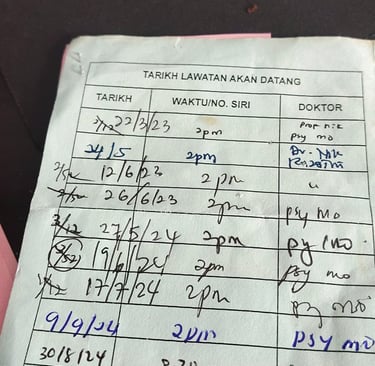 TARIKH LAWATAN AKAN DATANG
TARIKH WAKTU/NO. SIRI DOKTOR
22/3/23 2pm Prof Nik
psy mo
24/5 2pm Dr. Nik
12/6/23 2pm "
26/6/23 2pm psy mo
3/12 27/5/24 2pm psy mo
19/6/24 2pm psy mo
17/7/24 2pm psy mo
9/9/24 2pm psy mo
30/8/24